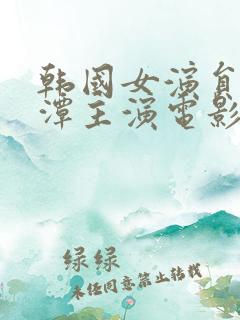 韩国女演员
潭主演电影
绿绿
未经同意禁止转载